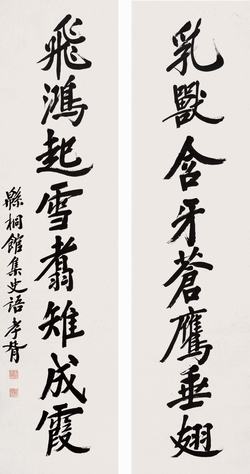 乳獸含牙蒼鷹垂翅
飛鴻起雪翥雉成霞
縣桐館集史語孝胥